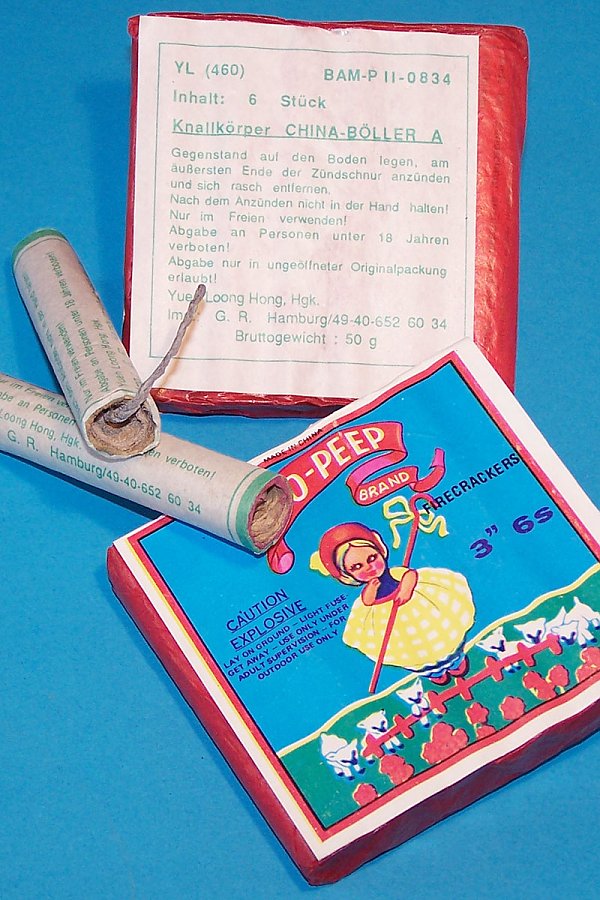 YL (460) BAM-P II-0834
Inhalt: 6 Stück
Knallkörper CHINA-BÖLLER A
Gegenstand auf den Boden legen, am
äußersten Ende der Zündschnur anzünden
und sich rasch entfernen.
Nach dem Anzünden nicht in der Hand halten!
Nur im Freien verwenden!
Abgabe an Personen unter 18 Jahren
verboten!
Abgabe nur in ungeöffneter Originalpackung
erlaubt!
Yuen Loong Hong, Hgk.
Im G. R. Hamburg/49-40-652 60 34
Bruttogewicht : 50 g
Nur im Freien verwenden!
Abgabe an Personen unter 18 Jahren verboten!
Yuen Loong Hong, Hgk.
Nur im Freien
Abgabe an Personen verboten!
Loong Hong, Hgk.
G. R. Hamburg/49-40-652 60 34
MADE IN CHINA
O-PEEP
BRAND
FIRECRACKERS
3" 6s
CAUTION
EXPLOSIVE
LAY ON GROUND – LIGHT FUSE-
GET AWAY – USE ONLY UNDER
ADULT SUPERVISION – FOR
OUTDOOR USE ONLY